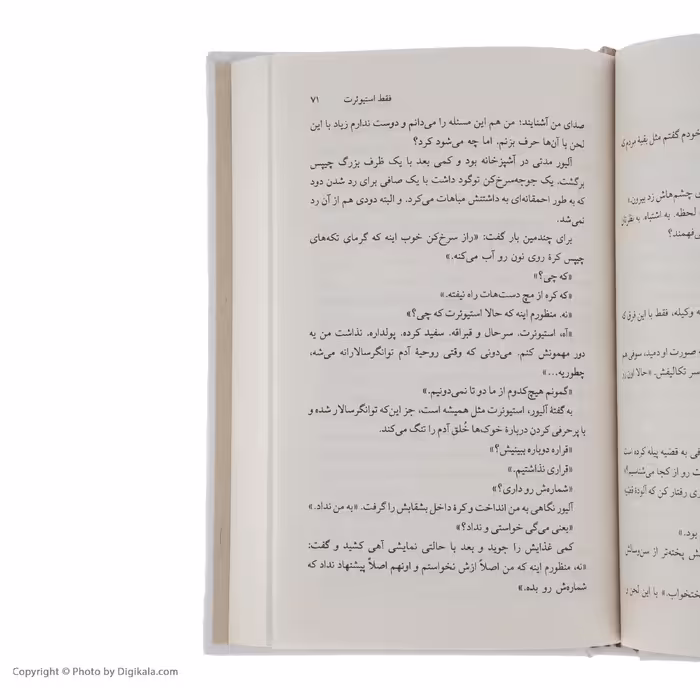 فقط استیوئرت ۷۱
صدای من آشنایند؛ من هم این مسئله را می‌دانم و دوست ندارم زیاد با این
لحن با آن‌ها حرف بزنم. اما چه می‌شود کرد؟
آلیور مدتی در آشپزخانه بود و کمی بعد با یک ظرف بزرگ چیپس
برگشت. یک جوجه‌سرخ‌کن توگود داشت با یک صافی برای رد شدن دود
که به طور احمقانه‌ای به داشتنش مباهات می‌کرد. و البته دودی هم از آن رد
نمی‌شد.
برای چندمین بار گفت: «راز سرخ‌کن خوب اینه که گرمای تکه‌های
چیپس کرهٔ روی نون رو آب می‌کنه.»
«که چی؟»
«که کره از مچ دست‌هات راه نیفته.»
«نه. منظورم اینه که حالا استیوئرت که چی؟»
«آه، استیوئرت. سرحال و قبراقه. سفید کرده. پولداره. نذاشت من یه
دور مهمونش کنم. می‌دونی که وقتی روحیهٔ آدم توانگرسالارانه می‌شه،
چطوریه...»
«گمونم هیچ‌کدوم از ما دو تا نمی‌دونیم.»
به گفتهٔ آلیور، استیوئرت مثل همیشه است، جز این‌که توانگرسالار شده و
با پرحرفی کردن دربارهٔ خوک‌ها خُلقِ آدم را تنگ می‌کند.
«قراره دوباره ببینیش؟»
«قراری نذاشتیم.»
«شماره‌ش رو داری؟»
آلیور نگاهی به من انداخت و کرهٔ داخل بشقابش را گرفت. «به من نداد.»
«یعنی می‌گی خواستی و نداد؟»
کمی غذایش را جوید و بعد با حالتی نمایشی آهی کشید و گفت:
«نه، منظورم اینه که من اصلاً ازش نخواستم و اونهم اصلاً پیشنهاد نداد که
شماره‌ش رو بده.»
خودم گفتم مثل بقیهٔ مردم
چشم‌هاش زد بیرون.
لحظه. به اشتباه. به نظر
وکیله، فقط با این فرق
صورت او دمید، سوفی هم
سر تکالیفش. «حالا اون
به قضیه پیله کرده است
رو از کجا می‌شناسیم؟
رفتار کن که آلودهٔ
بود.»
پخته‌تر از سن‌وسالش
ختخواب.» با این لحن
Copyright © Photo by Digikala.com